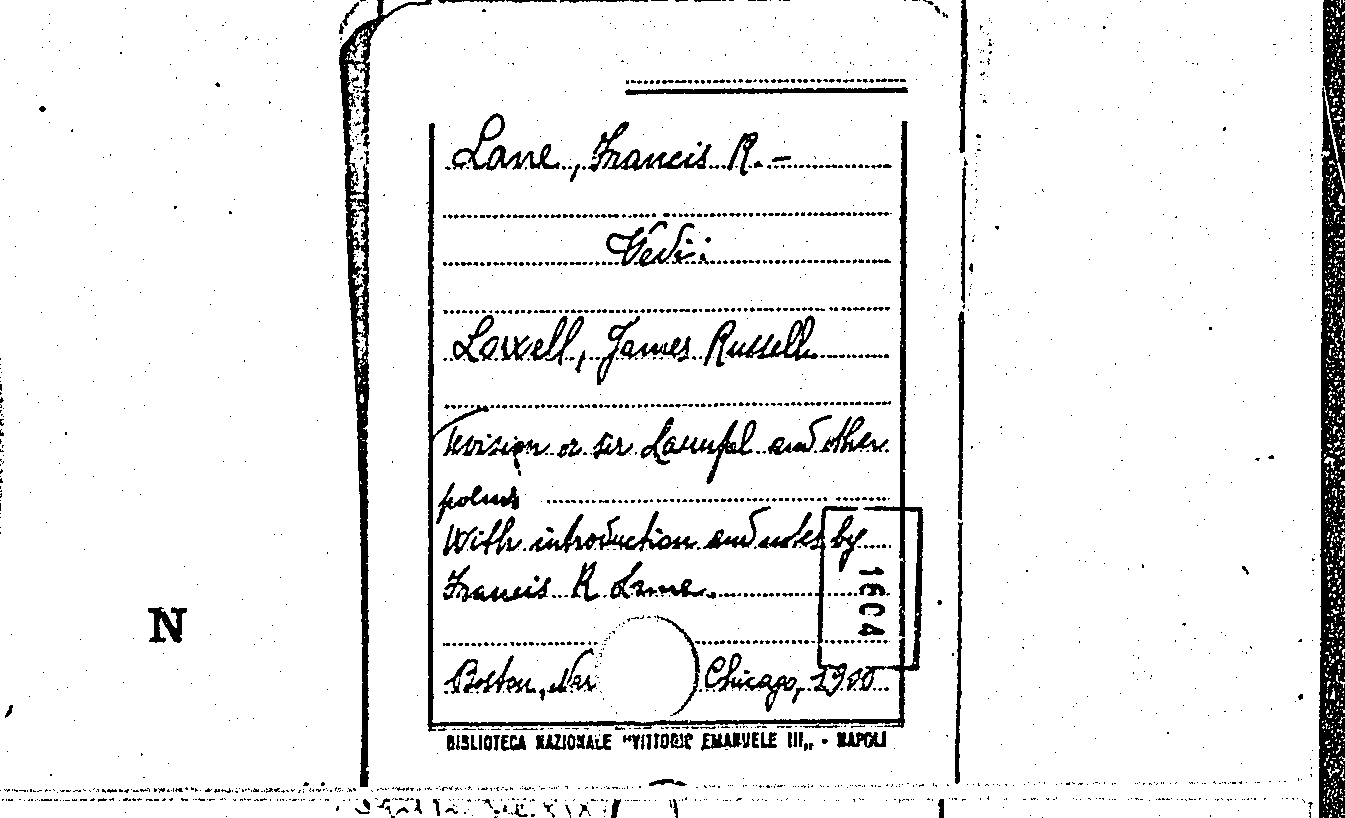 Lane, Francis R. -
Vedi:
Lowell, James Russell
Vision or sir Launfal and other
poems
With introduction and notes by
Francis R Lane.
Boston, Chicago, 1900
1604
BIBLIOTECA NAZIONALE "VITTORIO EMANUELE III„ - NAPOLI
N